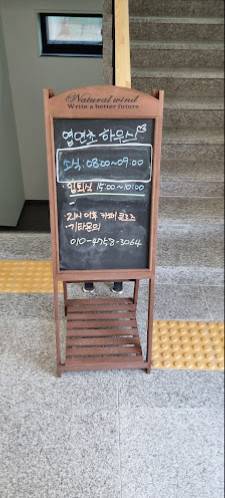 Natural wind
Write a better future
엽연초 하우스
조식 : 08:00~09:00
입퇴실 15:00~10:00
21시 이후 카페 클로즈
기타문의
010-4753-3064